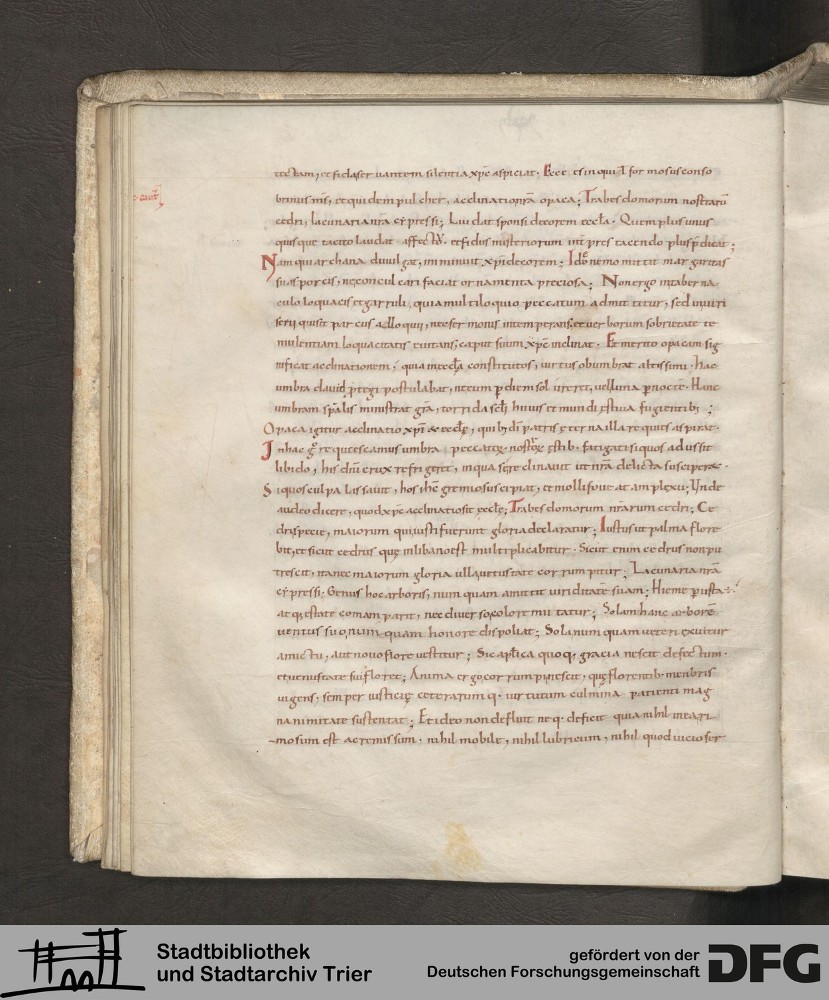 tectam, et fida seruantem silentia xp̄c aspiciat. Ecce es inquit formosus conso
brinus m̄s, et quidem pulcher, acclinatio nr̄a opaca; Trabes domorum nostrarū
cedri, lacunaria nr̄a cypressi; Laudat sponsi decorem eccła. Quem plus unus
quisque tacito laudat affectu, et fidus misteriorum int̄pres tacendo plus p̄dicat;
Nam qui archana diuulgat, imminuit xp̄i decorem; Ido nemo mittit margaritas
suas porcis, ne conculcari faciat ornamenta preciosa; Non ergo in taberna
culo loquacis et garruli, quia multiloquio peccatum admittitur, sed in uiri
serii qui sit parcus adloquii, nec sermonis intemperans, et uerborum sobrietate te
mulentiam loquacitatis euitans, caput suum xp̄c inclinat. Et merito opacam sig
nificat acclinationem, quia in eccła constitutos, uirtus obumbrat altissimi. Hac
umbra dauid p̄tegi postulabat, ne eum p diem sol ureret, uel luna p nocte. Hanc
umbram sp̄alis ministrat gr̄a, torrida sc̄li huius et mundi estiua fugientib;
Opaca igitur acclinatio xp̄i & ecclę, quib; d̄s patris ęterna illa requies aspirat.
In hac g̊ requiescamus umbra peccatores. fatigati si quos adussit
libido, his dn̄i crux refrigeret, in qua se reclinauit ut nr̄a delicta susciperet.
Si quos culpa lassauit, hos ih̄c gremio suscipiat, et mollifoueat amplexu; Unde
audeo dicere, quod xp̄c acclinatio sit ęcclę; Trabes domorum nr̄arum cedri; Ce
dri specie, maiorum qui iusti fuerunt gloria declaratur; Iustus ut palma flore
bit, et sicut cedrus quę in libano est multiplicabitur. Sicut enim cedrus non pu
trescit, ita nec maiorum gloria ulla uetustate corrumpitur; Lacunaria nr̄a
cypressi. Genus hoc arboris, numquam amittit uiriditatē suam; Hieme p iuxta
atq; ęstate comam parit, nec diuerso colore mutatur; Solam hanc arborē
uentus suo, numquam honore dispoliat; Sola numquam ueteri exuitur
amictu, aut nouo flore uestitur; Sic apl̄ica quoq. gracia nescit defectum.
et uenustate sui floret; Anima ergo, corrumpi nescit, quę florentib. membris
uigens, semper iusticię ceterarumq. uirtutum culmina patienti mag
nanimitate sustentat; Et ideo non defluit neq. deficit quia nihil in ea ri
mosum est ac remissum. nihil mobile, nihil lubricum, nihil quod uicio ser
Stadtbibliothek
und Stadtarchiv Trier
gefördert von der
Deutschen Forschungsgemeinschaft
DFG